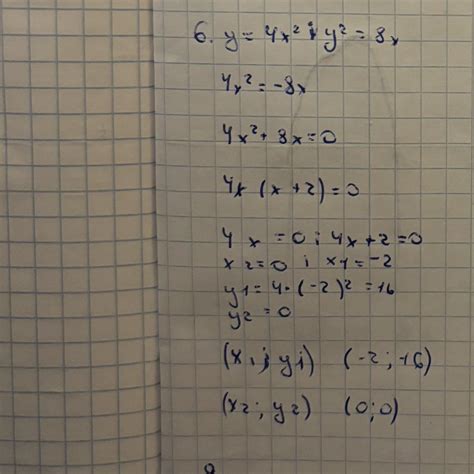 6. y = 4x² i y² = 8x
4x² = -8x
4x² + 8x = 0
4x (x + 2) = 0
4x = 0 i 4x + 2 = 0
x2 = 0 i x1 = -2
y1 = 4·(-2)² = 16
y2 = 0
(x1; y1) (-2; 16)
(x2; y2) (0; 0)